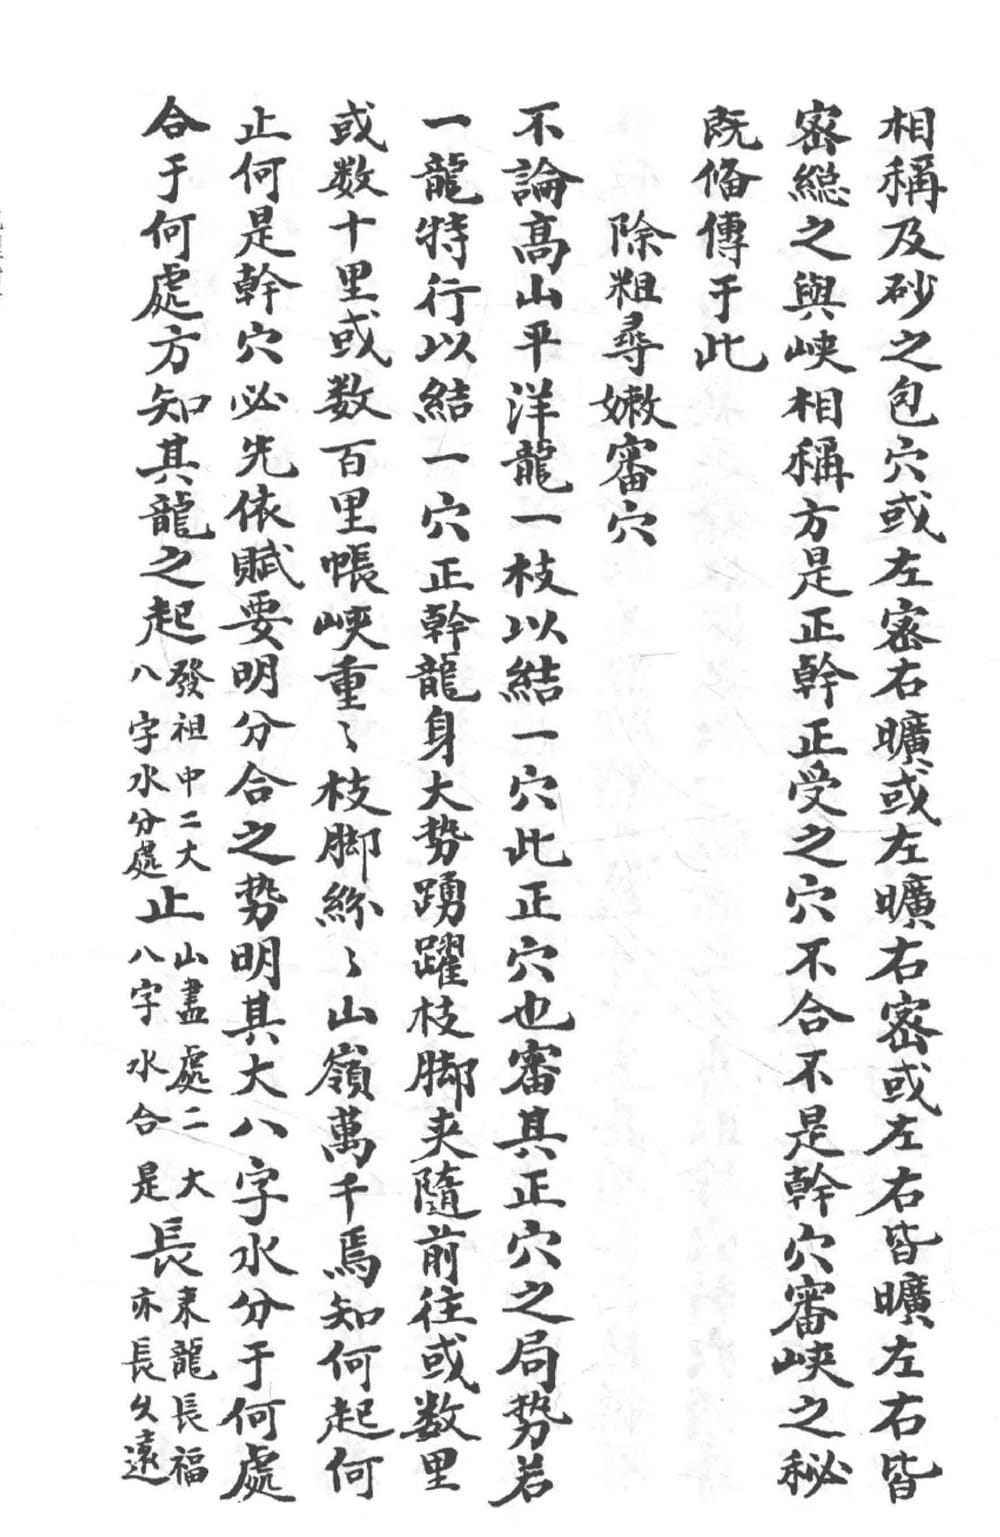 相稱及砂之包穴或左密右曠或左曠右密或左右皆曠左右皆
密總之與峽相稱方是正幹正受之穴不合不是幹穴審峽之秘
既俻傳于此
除粗尋嫩審穴
不論高山平洋龍一枝以結一穴此正穴也審其正穴之局势若
一龍特行以結一穴正幹龍身大势踴躍枝脚夹隨前往或数里
或数十里或数百里帳峽重〻枝脚綿〻山嶺萬千焉知何起何
止何是幹穴必先依賦要明分合之势明其大八字水分于何處
合于何處方知其龍之起
發祖中二大
八字水分處
止
山盡處二大
八字水合是
長
来龍長福
亦長久遠